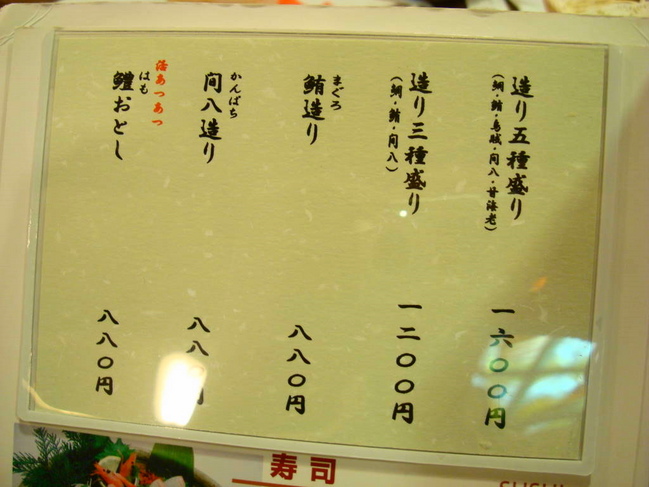 造り五種盛り
（鯛・鮪・烏賊・間八・甘海老）
一六〇〇円
造り三種盛り
（鯛・鮪・間八）
一二〇〇円
まぐろ
鮪造り
八八〇円
かんぱち
間八造り
八八〇円
活あつあつ
はも
鱧おとし
八八〇円
寿司
SUSHI